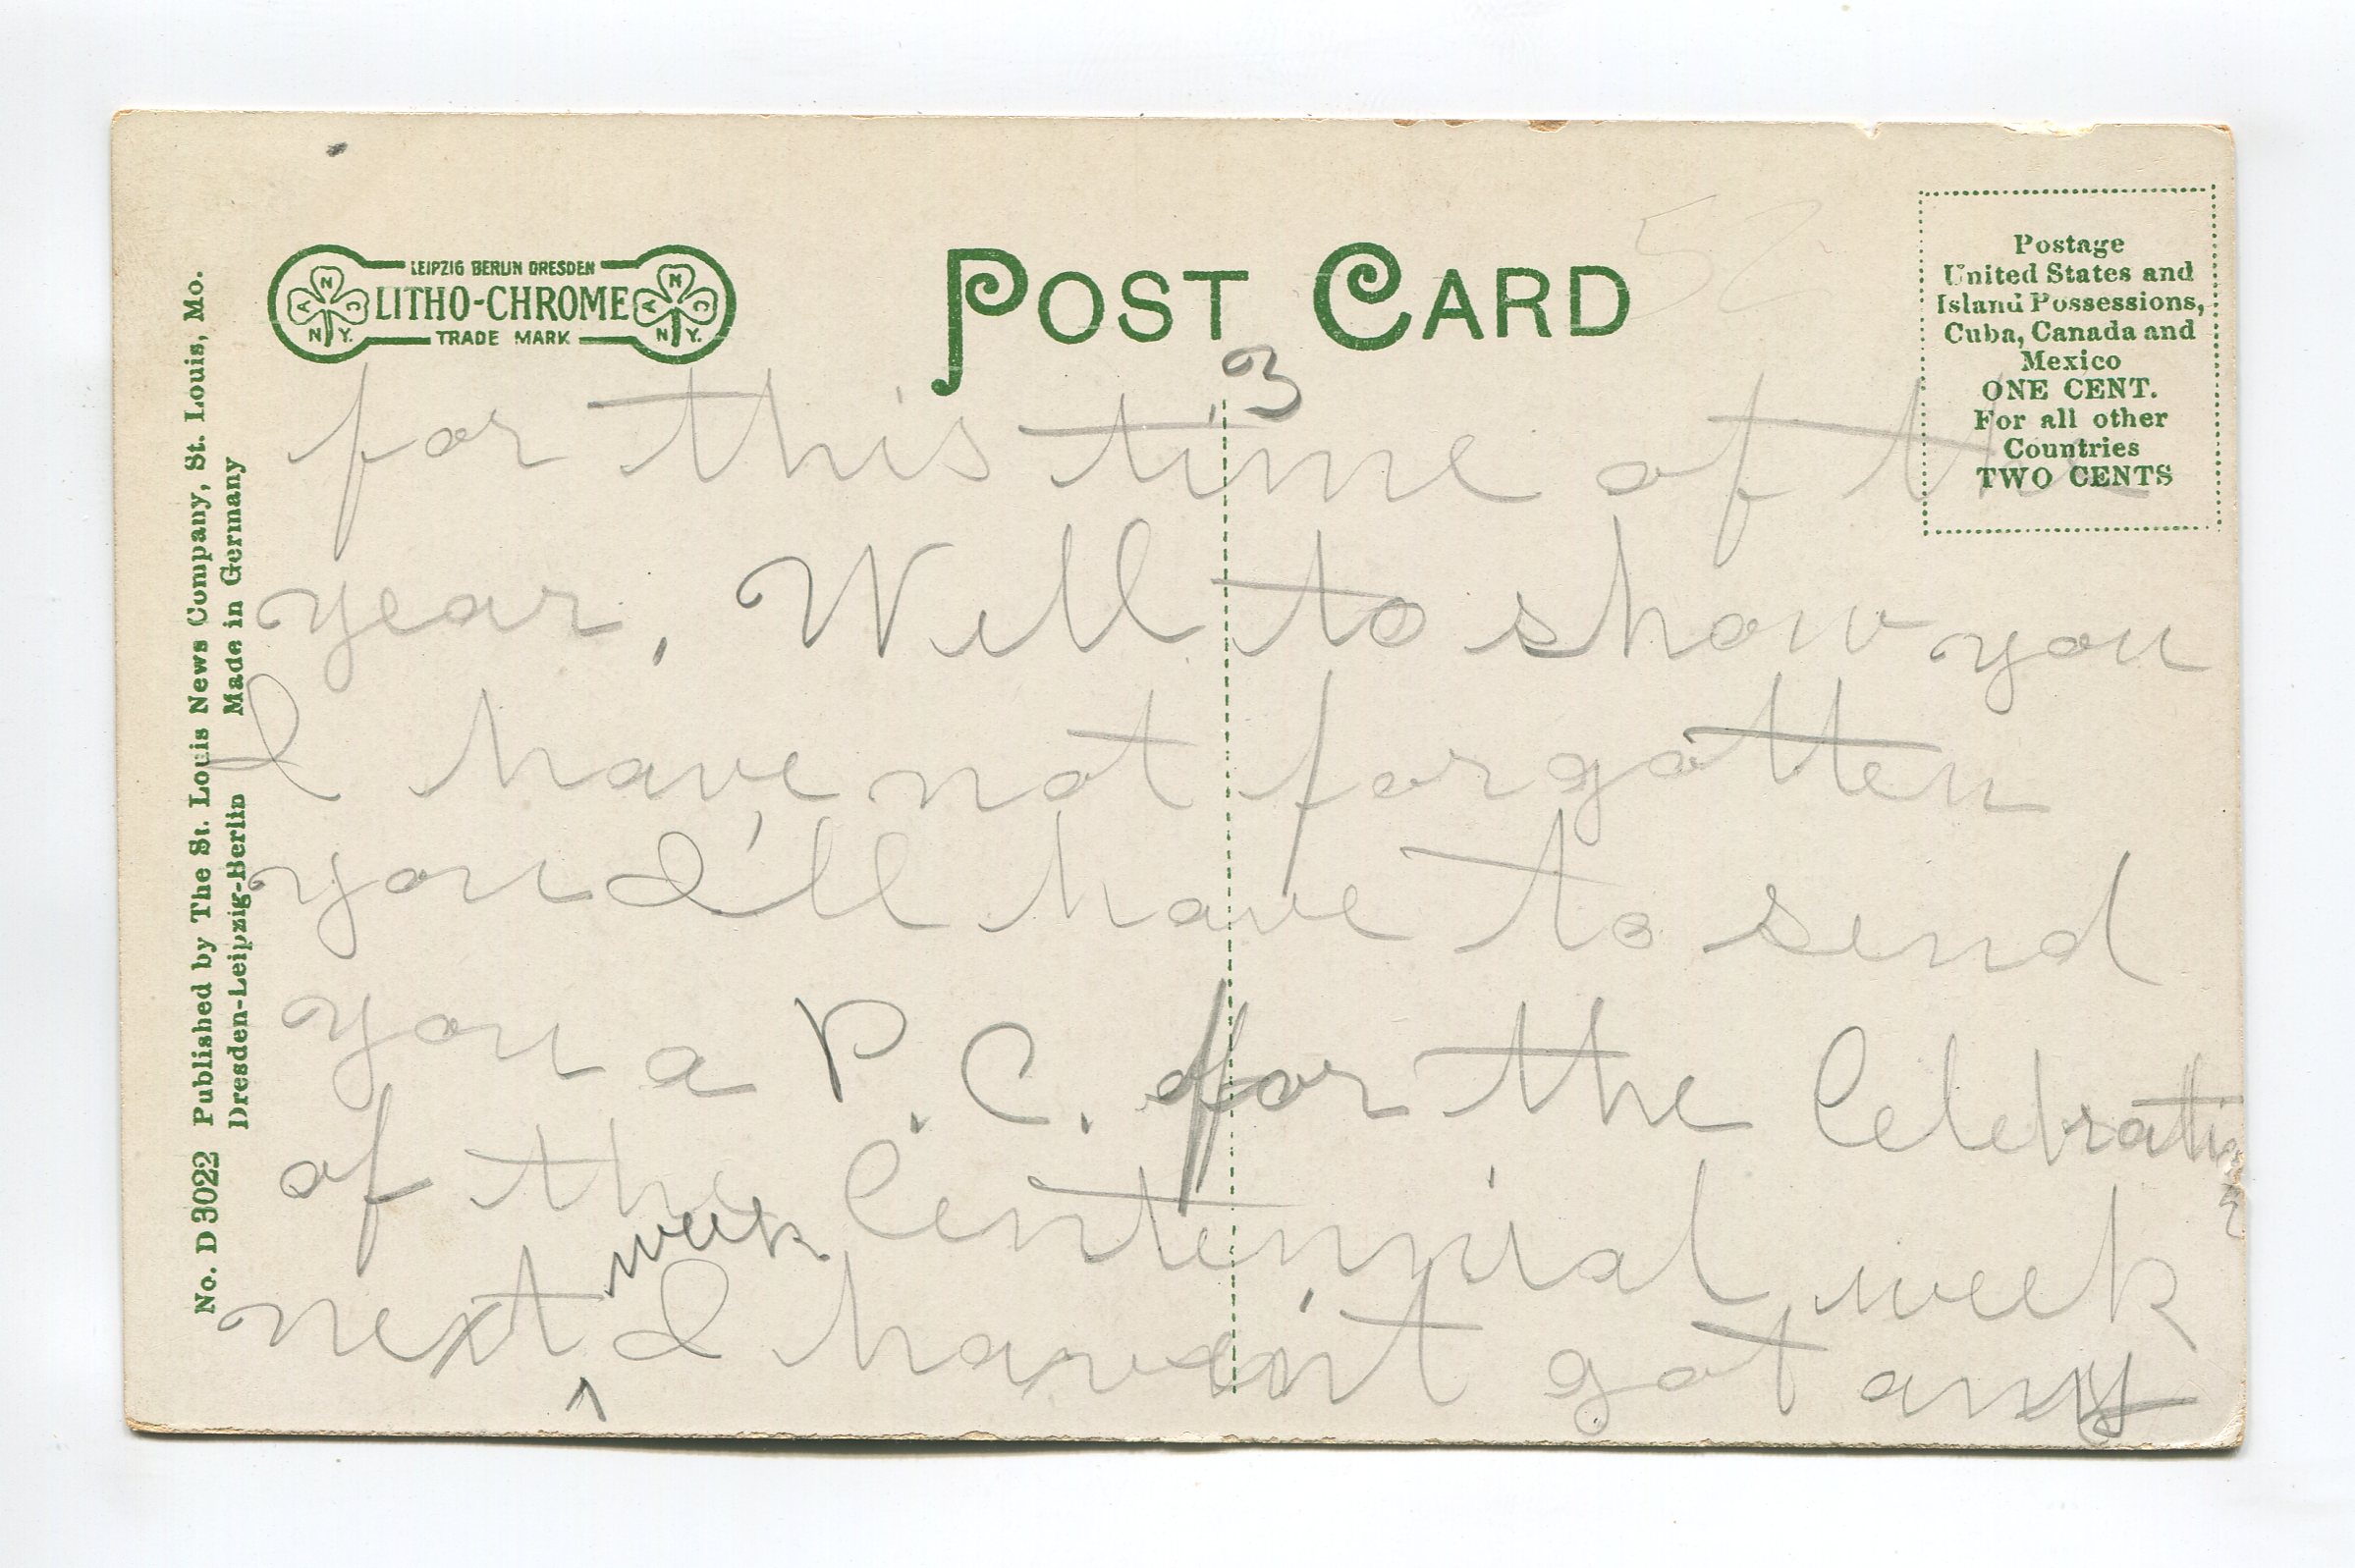 No. D 3022 Published by The St. Louis News Company, St. Louis, Mo.
Dresden-Leipzig-Berlin Made in Germany
LEIPZIG BERLIN DRESDEN
LITHO-CHROME
TRADE MARK
A N C N.Y.
A N C N.Y.
POST CARD
52
Postage
United States and
Island Possessions,
Cuba, Canada and
Mexico
ONE CENT.
For all other
Countries
TWO CENTS
3
for this time of the
year, Well to show you
I have not forgotten
you I'll have to send
you a P.C. for the Celebration
of the Centennial week
next week I haven't got any